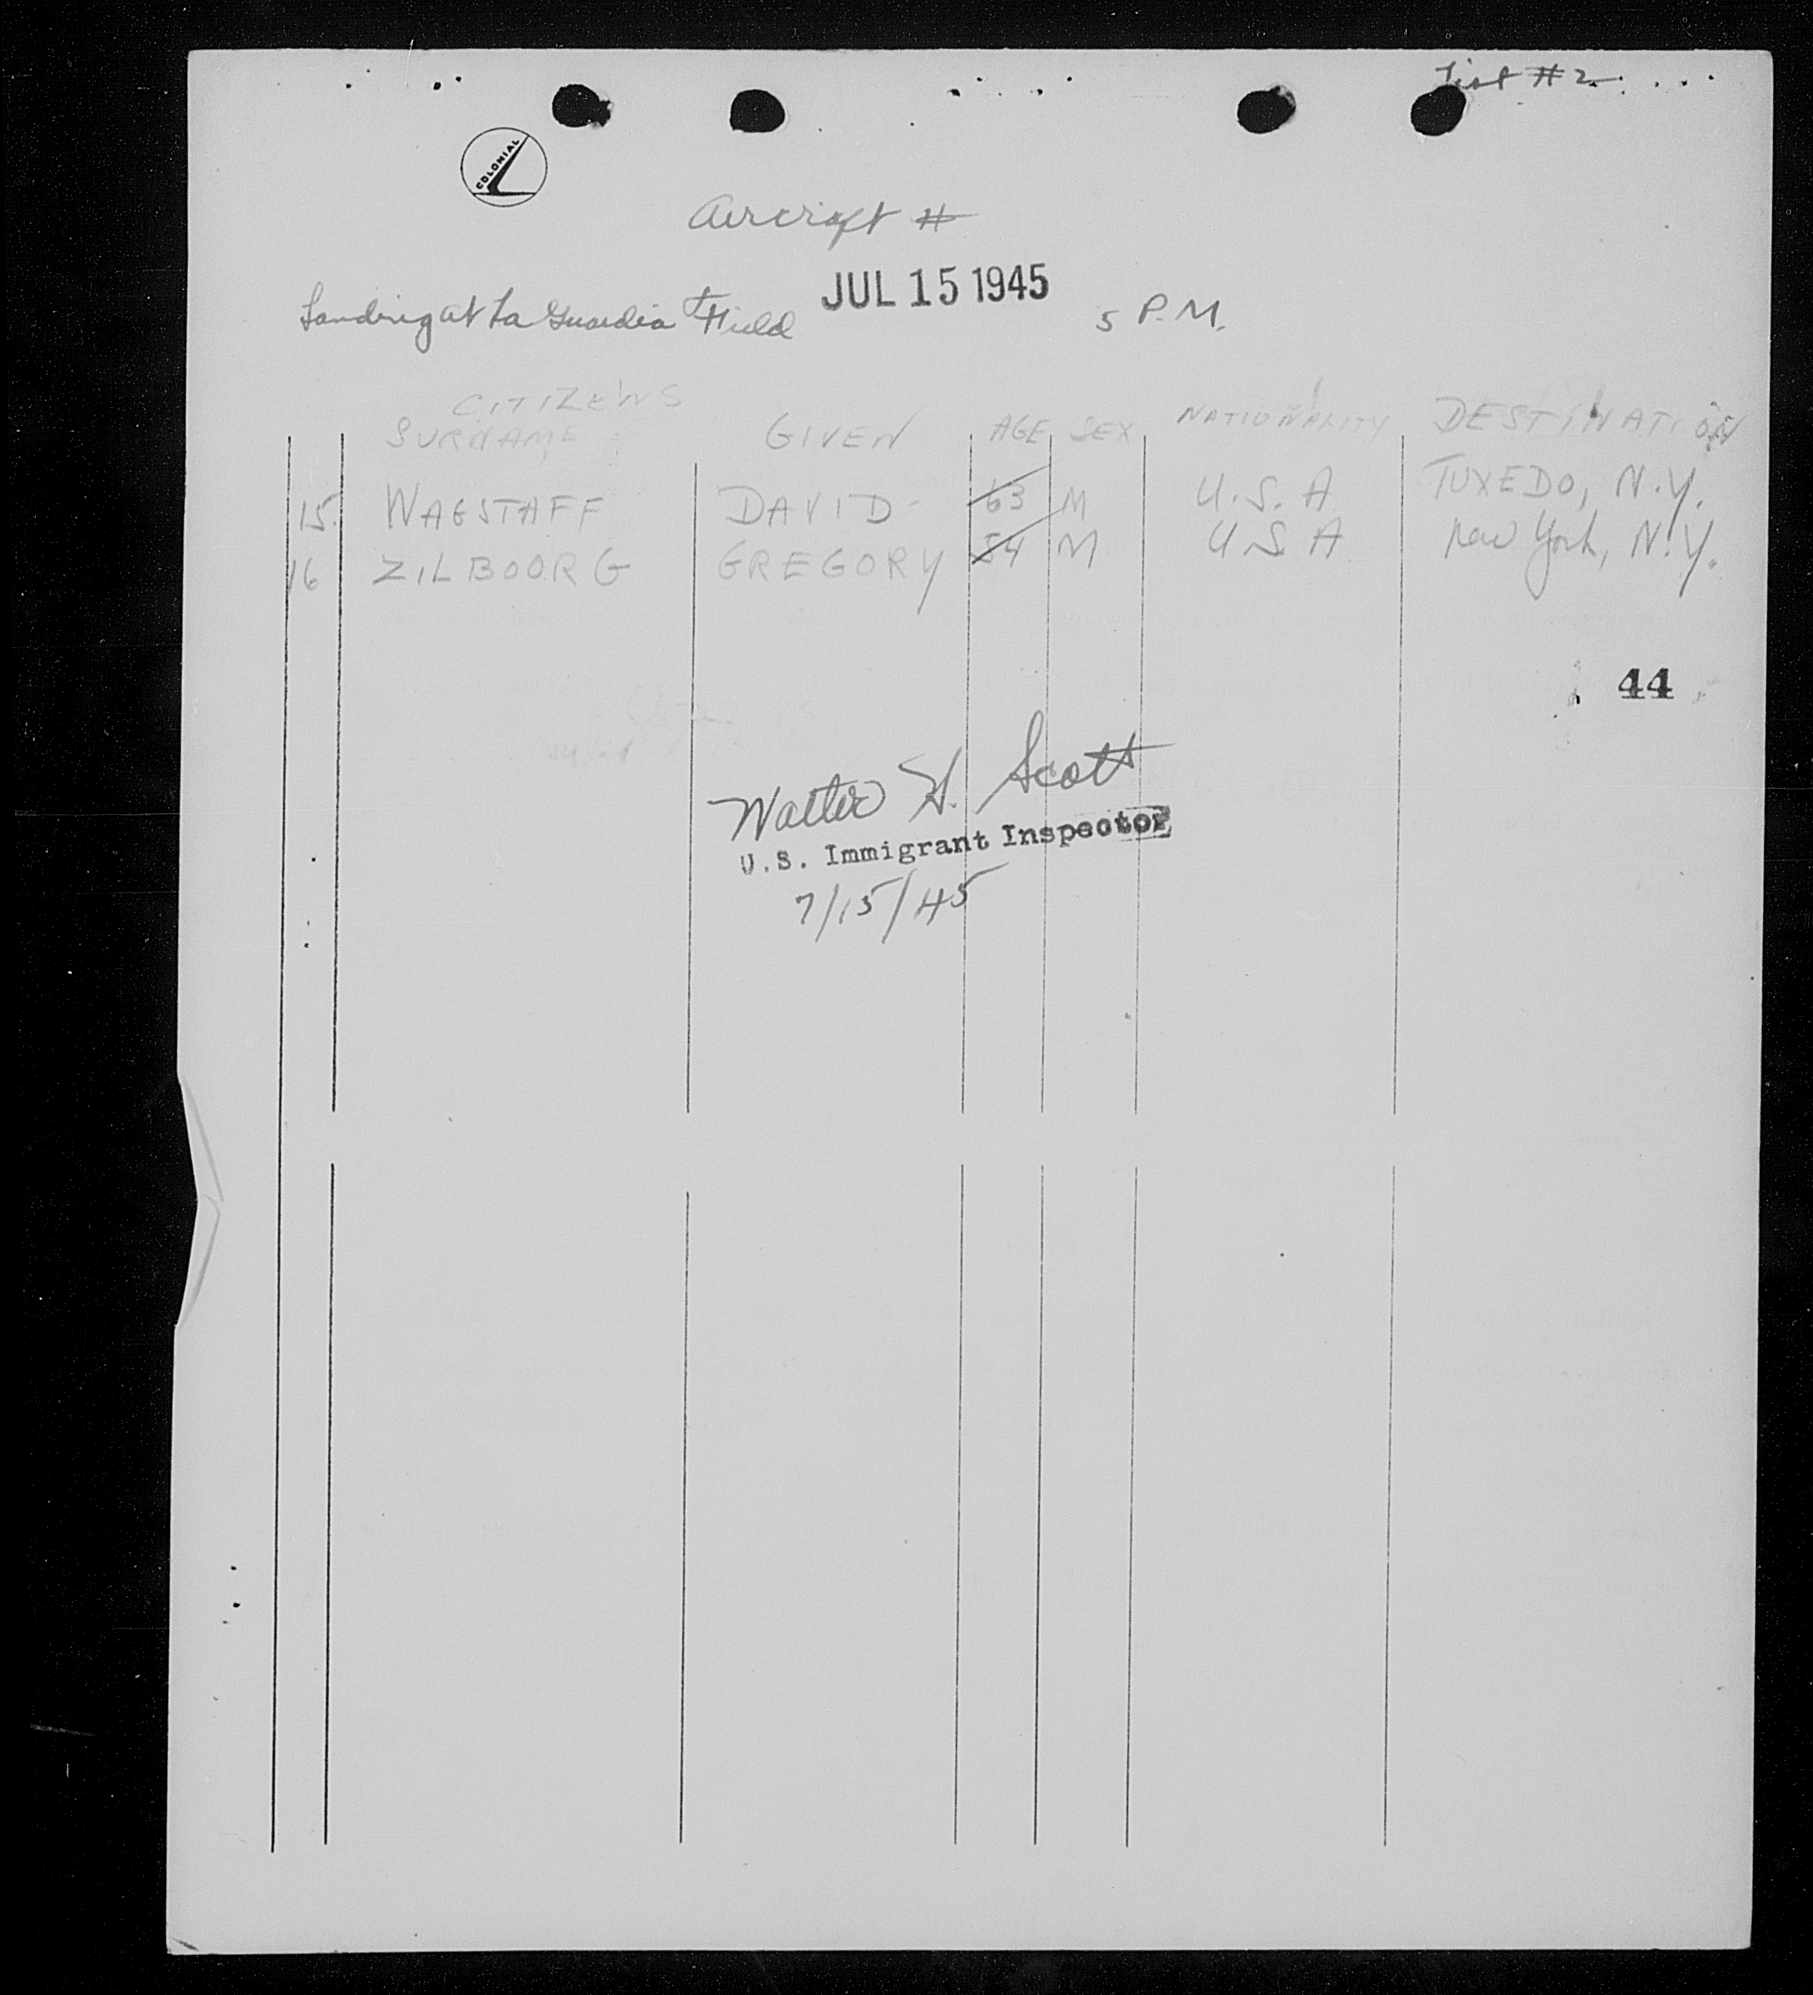 List #2
COLONIAL
Aircraft #
Landing at La Guardia Field JUL 15 1945 5 P.M.
CITIZENS
SURNAME GIVEN AGE SEX NATIONALITY DESTINATION
15. WAGSTAFF DAVID - 63 M U.S.A TUXEDO, N.Y.
16 ZILBOORG GREGORY 54 M U S A New York, N.Y.
44
Walter H. Scott
U.S. Immigrant Inspector
7/15/45